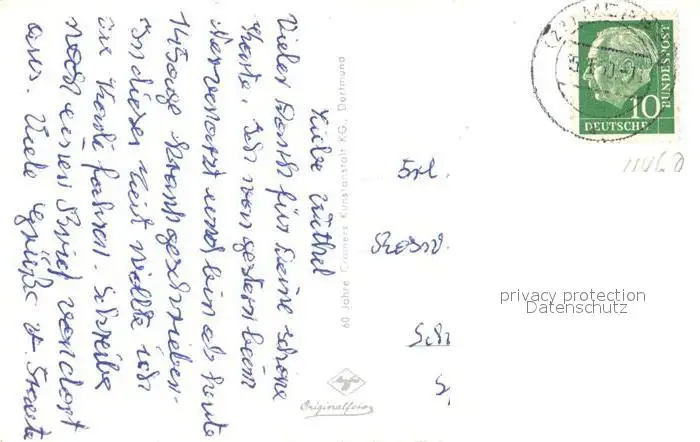 Liebe
Vielen Dank für Deine schöne
Karte. Ich war gestern beim
Nervenarzt und bin ab heute
14 Tage krank geschrieben.
In dieser Zeit wollte ich
zur Kardi fahren. Schreibe
noch einen Brief von dort
aus. Viele Grüße
60 Jahre Cramers Kunstanstalt KG., Dortmund
Agfa
Originalfoto
10
DEUTSCHE
BUNDESPOST
Frl.
Rosw.
Sch
privacy protection
Datenschutz